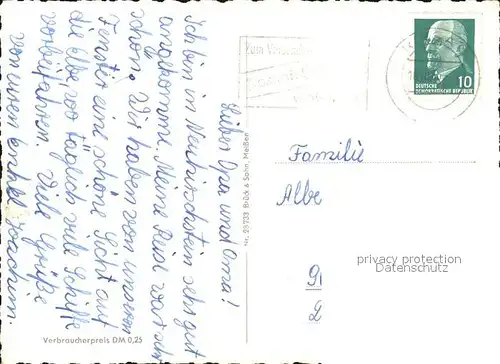 Lieber Opa und Oma!
Ich bin in Neuhirschstein sehr gut
angekommen. Meine Reise war sehr
schön. Wir haben von unserem
Fenster eine schöne Sicht auf
die Elbe, wo täglich viele Schiffe
vorbeifahren. Viele Grüße
von eurem Enkel Joachim.
Verbraucherpreis DM 0,25
Nr. 28733 Brück & Sohn, Meißen
10
DEUTSCHE
DEMOKRATISCHE REPUBLIK
Familie
Albe
privacy protection
Datenschutz